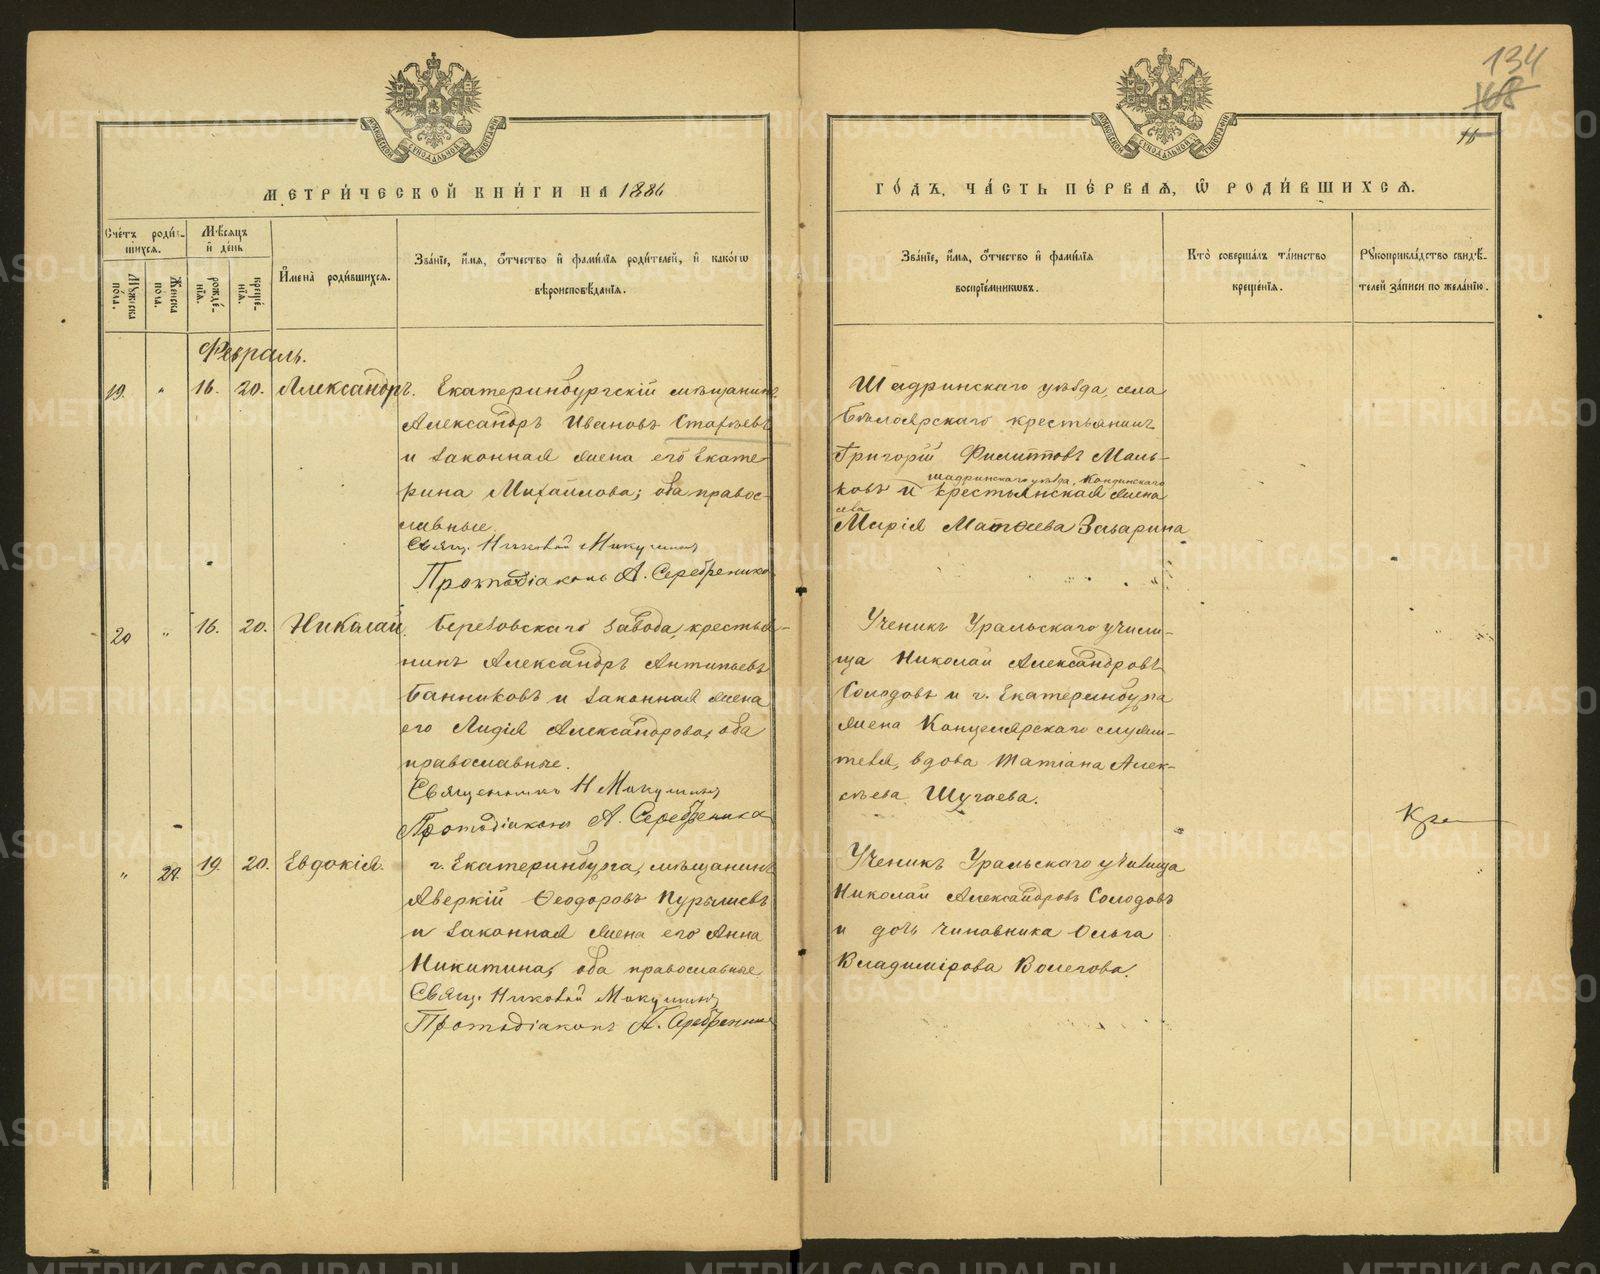 134
168
МЕТРИ́ЧЕСКОЙ КНИ́ГИ НА 1886
ГО́ДЪ, ЧА́СТЬ ПЕ́РВАЯ, Ѡ РОДИ́ВШИХСЯ.
Сче́тъ роди́вшихся.
Мꙋ́жеска по́ла.
Же́нска по́ла.
Мѣ́сяцъ и҆ де́нь
рожде́нїѧ.
креще́нїѧ.
И҆мена̀ роди́вшихсѧ.
Зва́нїе, и҆́мѧ, ѻ҆́тчество и҆ фами́лїѧ роди́телей, и҆ како́гѡ
вѣроисповѣ́данїѧ.
Зва́нїе, и҆́мѧ, ѻ҆́тчество и҆ фами́лїѧ
воспрїе́мникѡвъ.
Кто̀ соверша́лъ та́инство
креще́нїѧ.
Рꙋкоприкла́дство свидѣ́-
телей за́писи по жела́нїю.
Февраль.
19. " 16. 20. Александръ. Екатеринбургскій мѣщанинъ
Александръ Ивановъ Стахѣевъ
и законная жена его Екате-
рина Михайлова; оба правос-
лавные.
Свящ. Никовай Микушинъ
Протодіаконъ А. Серебренико
Шадринскаго уѣзда, села
Бѣлоярскаго крестьянинъ
Григорій Филипповъ Маль-
шадринскаго уѣзда, Кондинскаго
ковъ и крестьянская жена
Марія Матѳеева Заварина
20 " 16. 20. Николай. Березовскаго завода, крестья-
нинъ Александръ Антипьевъ
Банниковъ и законная жена
его Лидія Александрова, оба
православные.
Священникъ Н Микушинъ
Протодіаконъ А. Серебреника
Ученикъ Уральскаго учили-
ща Николай Александровъ
Солодовъ и г. Екатеринбурга
жена Канцелярскаго служи-
теля, вдова Татіана Алек-
сѣева Шугаева.
" 24. 19. 20. Евдокія. г. Екатеринбурга, мѣщанинъ
Аверкій Ѳеодоровъ Пурышевъ
и законная жена его Анна
Никитина, оба православные
Свящ. Никовай Микушинъ
Протодіаконъ А. Серебренник
Ученикъ Уральскаго училища
Николай Александровъ Солодовъ
и дочь чиновника Ольга
Владимірова Волегова.
METRIKI.GASO-URAL.RU